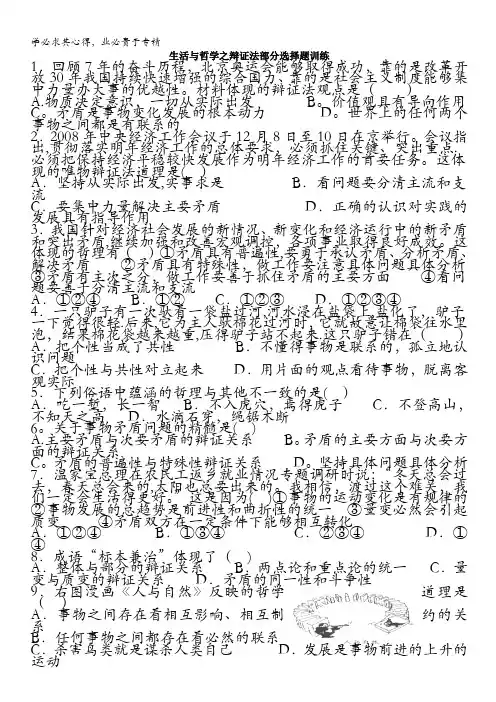 学必求其心得，业必贵于专精
生活与哲学之辩证法部分选择题训练
1．回顾7年的奋斗历程，北京奥运会能够取得成功，靠的是改革开
放30年我国持续快速增强的综合国力、靠的是社会主义制度能够集
中力量办大事的优越性。材料体现的辩证法观点是（　　）
A.物质决定意识，一切从实际出发　　B。价值观具有导向作用
C。矛盾是事物变化发展的根本动力　　D。世界上的任何两个
事物之间都是有联系的
2．2008年中央经济工作会议于12月8日至10日在京举行。会议指
出,贯彻落实明年经济工作的总体要求，必须抓住关键、突出重点，
必须把保持经济平稳较快发展作为明年经济工作的首要任务。这体
现的唯物辩证法道理是(　　)
A．坚持从实际出发,实事求是　　B．看问题要分清主流和支
流
C．要集中力量解决主要矛盾　　D．正确的认识对实践的
发展具有指导作用
3．我国针对经济社会发展的新情况、新变化和经济运行中的新矛盾
和突出矛盾,继续加强和改善宏观调控，各项事业取得良好成效。这
体现的哲理有（　　)①矛盾具有普遍性,要勇于承认矛盾、分析矛盾、
解决矛盾　　②矛盾具有特殊性，做工作要注意具体问题具体分析
③矛盾有主次之分，做工作要善于抓住矛盾的主要方面　　④看问
题要善于分清主流和支流
A．①②④　　B．①②　　C．①②③　　D．①②③④
4．一只驴子有一次驮着一袋盐过河,河水浸在盐袋上,盐化了，驴子
一下觉得很轻.后来,它为主人驮棉花过河时，它就故意让棉袋往水里
泡，结果棉花袋越来越重,压得驴子站不起来.这只驴子错在（　　）
A．把个性当成了共性　　B．不懂得事物是联系的，孤立地认
识问题
C．把个性与共性对立起来　　D．用片面的观点看待事物，脱离客
观实际
5．下列俗语中蕴涵的哲理与其他不一致的是(　　)
A．吃一堑，长一智　　B．不入虎穴，焉得虎子　　C．不登高山，
不知天之高　　D．水滴石穿，绳锯木断
6。关于事物矛盾问题的精髓是(　　)
A.主要矛盾与次要矛盾的辩证关系　　B。矛盾的主要方面与次要方
面的辩证关系
C。矛盾的普遍性与特殊性辩证关系　　D。坚持具体问题具体分析
7．温家宝总理在农民工返乡就业情况专题调研时说：“冬天总会过
去，春天总会来的,太阳也总要出来的。我相信，渡过这个难关，我
们一定会生活得更好。”这是因为(　　)①事物的运动变化是有规律的
②事物发展的总趋势是前进性和曲折性的统一　　③量变必然会引起
质变　　④矛盾双方在一定条件下能够相互转化
A．①②④　　B．①③④　　C．②③④　　D．①
④
8．成语“标本兼治”体现了（　　)
A．整体与部分的辩证关系　　B．两点论和重点论的统一　　C．量
变与质变的辩证关系　　D．矛盾的同一性和斗争性
9．右图漫画《人与自然》反映的哲学道理是
（　　）
A．事物之间存在着相互影响、相互制约的关
系
B．任何事物之间都存在着必然的联系
C．杀害鸟类就是谋杀人类自己　　D．发展是事物前进的上升的
运动